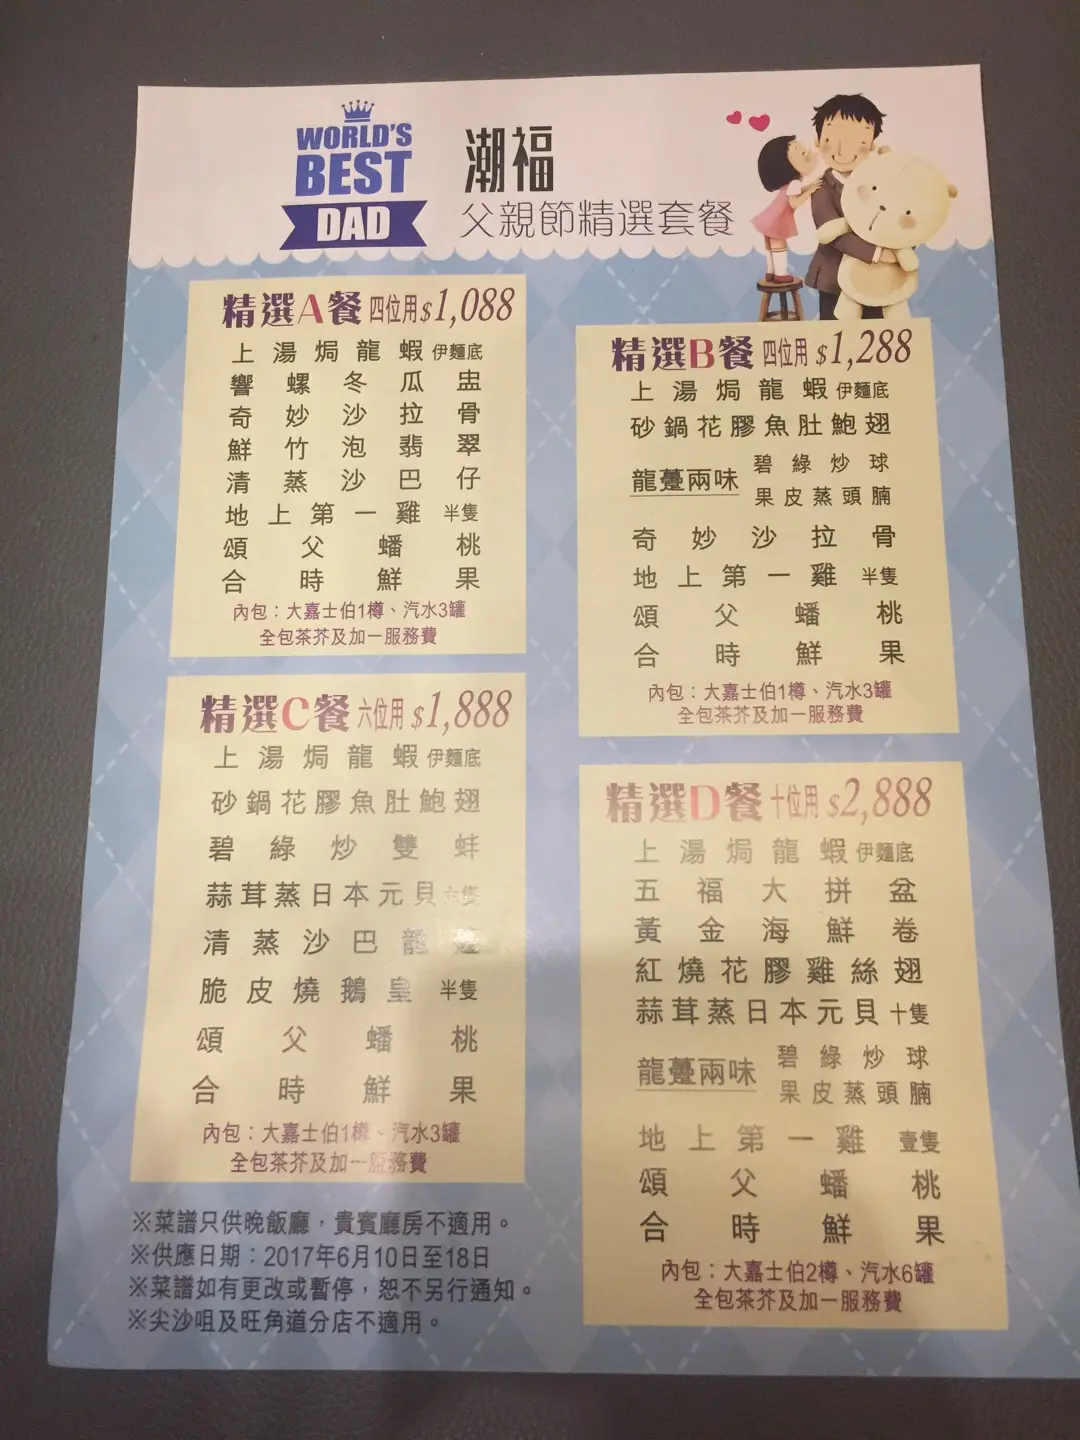 WORLD'S
BEST
DAD
潮福
父親節精選套餐
精選A餐 四位用 $1,088
上湯焗龍蝦 伊麵底
響螺冬瓜盅
奇妙沙拉骨
鮮竹泡翡翠
清蒸沙巴仔
地上第一雞 半隻
頌父蟠桃
合時鮮果
內包：大嘉士伯1樽、汽水3罐
全包茶芥及加一服務費
精選B餐 四位用 $1,288
上湯焗龍蝦 伊麵底
砂鍋花膠魚肚鮑翅
龍躉兩味 碧綠炒球
果皮蒸頭腩
奇妙沙拉骨
地上第一雞 半隻
頌父蟠桃
合時鮮果
內包：大嘉士伯1樽、汽水3罐
全包茶芥及加一服務費
精選C餐 六位用 $1,888
上湯焗龍蝦 伊麵底
砂鍋花膠魚肚鮑翅
碧綠炒雙蚌
蒜茸蒸日本元貝 六隻
清蒸沙巴龍躉
脆皮燒鵝皇 半隻
頌父蟠桃
合時鮮果
內包：大嘉士伯1樽、汽水3罐
全包茶芥及加一服務費
精選D餐 十位用 $2,888
上湯焗龍蝦 伊麵底
五福大拼盆
黃金海鮮卷
紅燒花膠雞絲翅
蒜茸蒸日本元貝 十隻
龍躉兩味 碧綠炒球
果皮蒸頭腩
地上第一雞 壹隻
頌父蟠桃
合時鮮果
內包：大嘉士伯2樽、汽水6罐
全包茶芥及加一服務費
※菜譜只供晚飯廳，貴賓廳房不適用。
※供應日期：2017年6月10日至18日
※菜譜如有更改或暫停，恕不另行通知。
※尖沙咀及旺角道分店不適用。